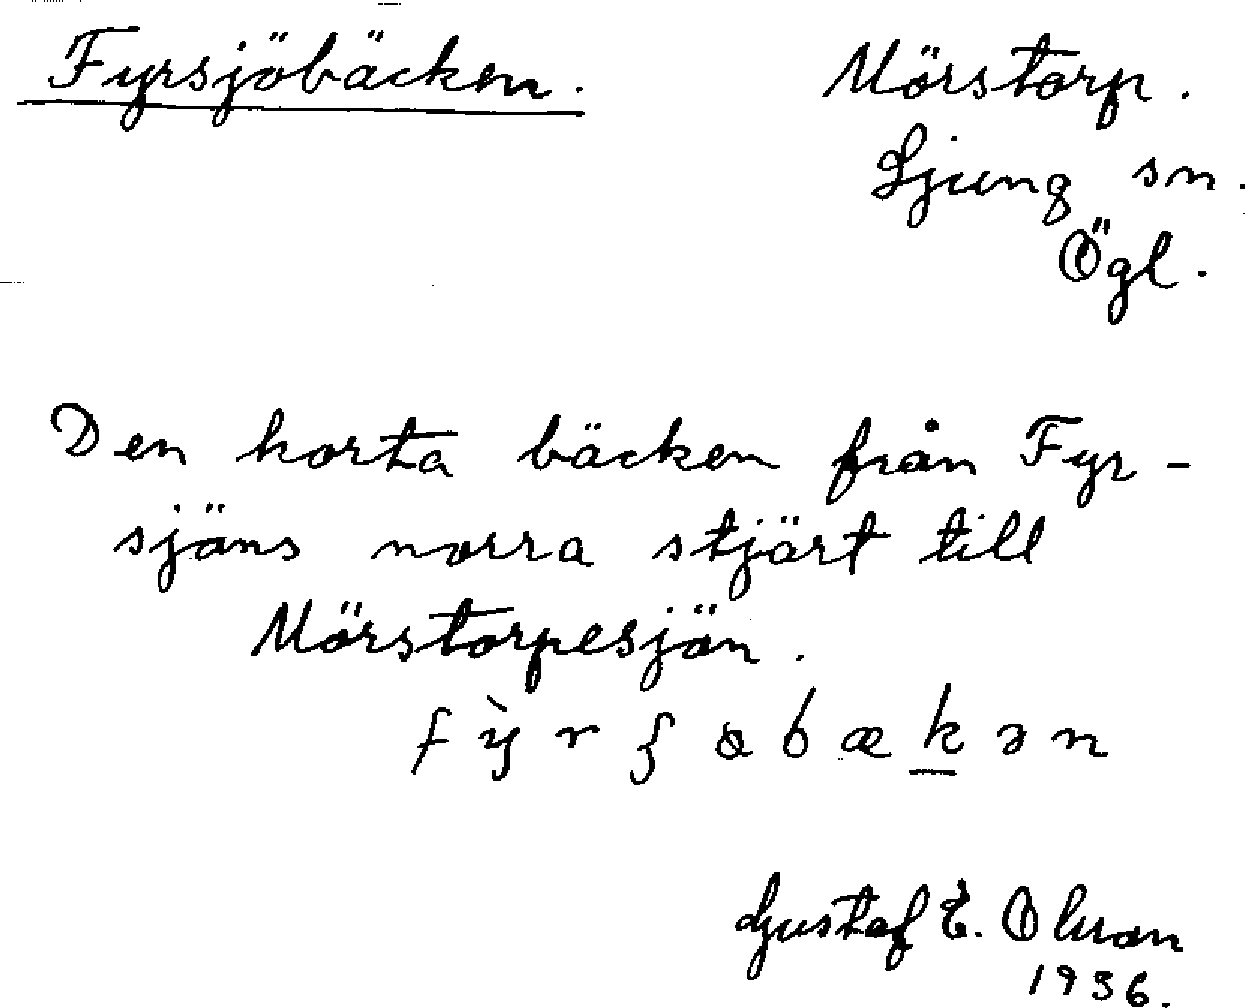 Fyrsjöbäcken. Mörstorp.
Ljung sn.
Ögl.
Den korta bäcken från Fyr-
sjäns norra stjärt till
Mörstorpesjön.
Gustaf E.
1936.